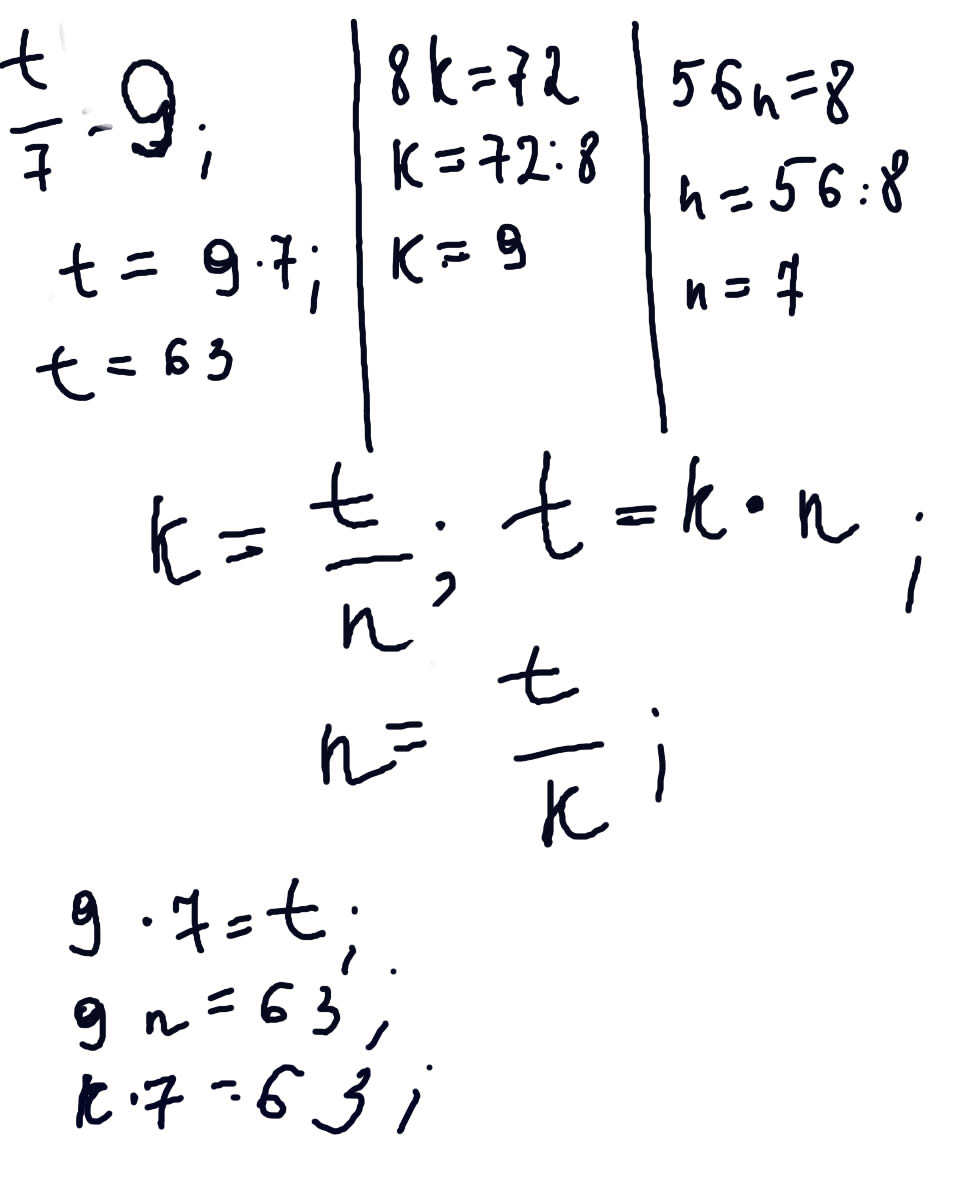 t/7 = 9;
t = 9·7;
t = 63
8k=72
k=72:8
k= 9
56n=8
n=56:8
n= 7
k= t/n; t=k·n;
n= t/k;
9·7=t;
9n=63;
k·7=63;